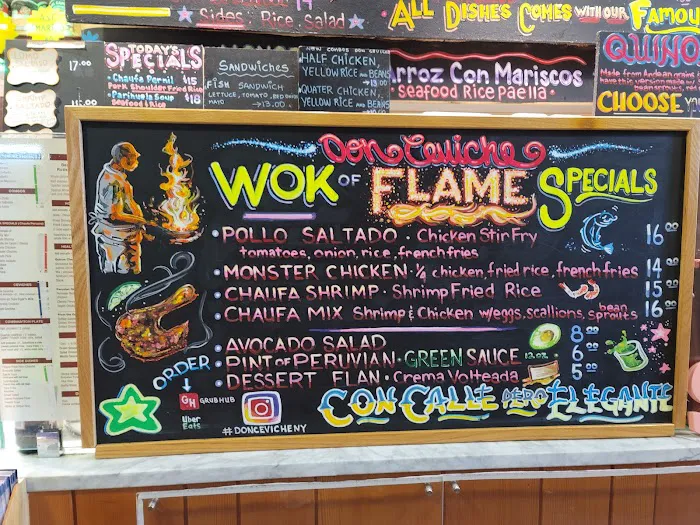 Sides: Rice, Salad
All Dishe's Comes with our Famou
17.00
Today's Specials
Chaufa Pernil $15
Pork Shoulder Fried Rice
Parihuela Soup $18
Seafood & Rice
Sandwiches
Fish Sandwich
Lettuce, Tomato, Red Onion
Mayo 13.00
Half Chicken,
Yellow Rice and Beans
Quater Chicken,
Yellow Rice and Beans
Arroz Con Mariscos
Seafood Rice Paella
Quino
Made from Andean grain
Choose
Don Ceviche
Wok of Flame Specials
Pollo Saltado · Chicken Stir Fry 16.00
tomatoes, onion, rice, french fries
Monster Chicken · 1/4 chicken, fried rice, french fries 14.00
Chaufa Shrimp · Shrimp Fried Rice 15.00
Chaufa Mix Shrimp & Chicken w/eggs, scallions, bean sprouts 16.00
Avocado Salad 8.00
Pint of Peruvian · Green Sauce 12 oz. 6.00
Dessert Flan · Crema Volteada 5.00
Order
GH GRUBHUB
Uber Eats
#DONCEVICHENY
Con Calle pero Elegante